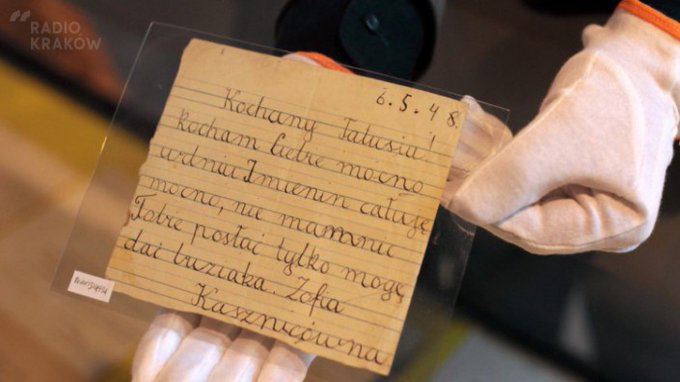 RADIO
KRAKÓW
6.5.48.
Kochany Tatusiu!
kocham Ciebie mocno
w dniu Imienin całuję
mocno, nie mam nic
Tobie posłać tylko mogę
dać buziaka. Zofia
Kasznicówna